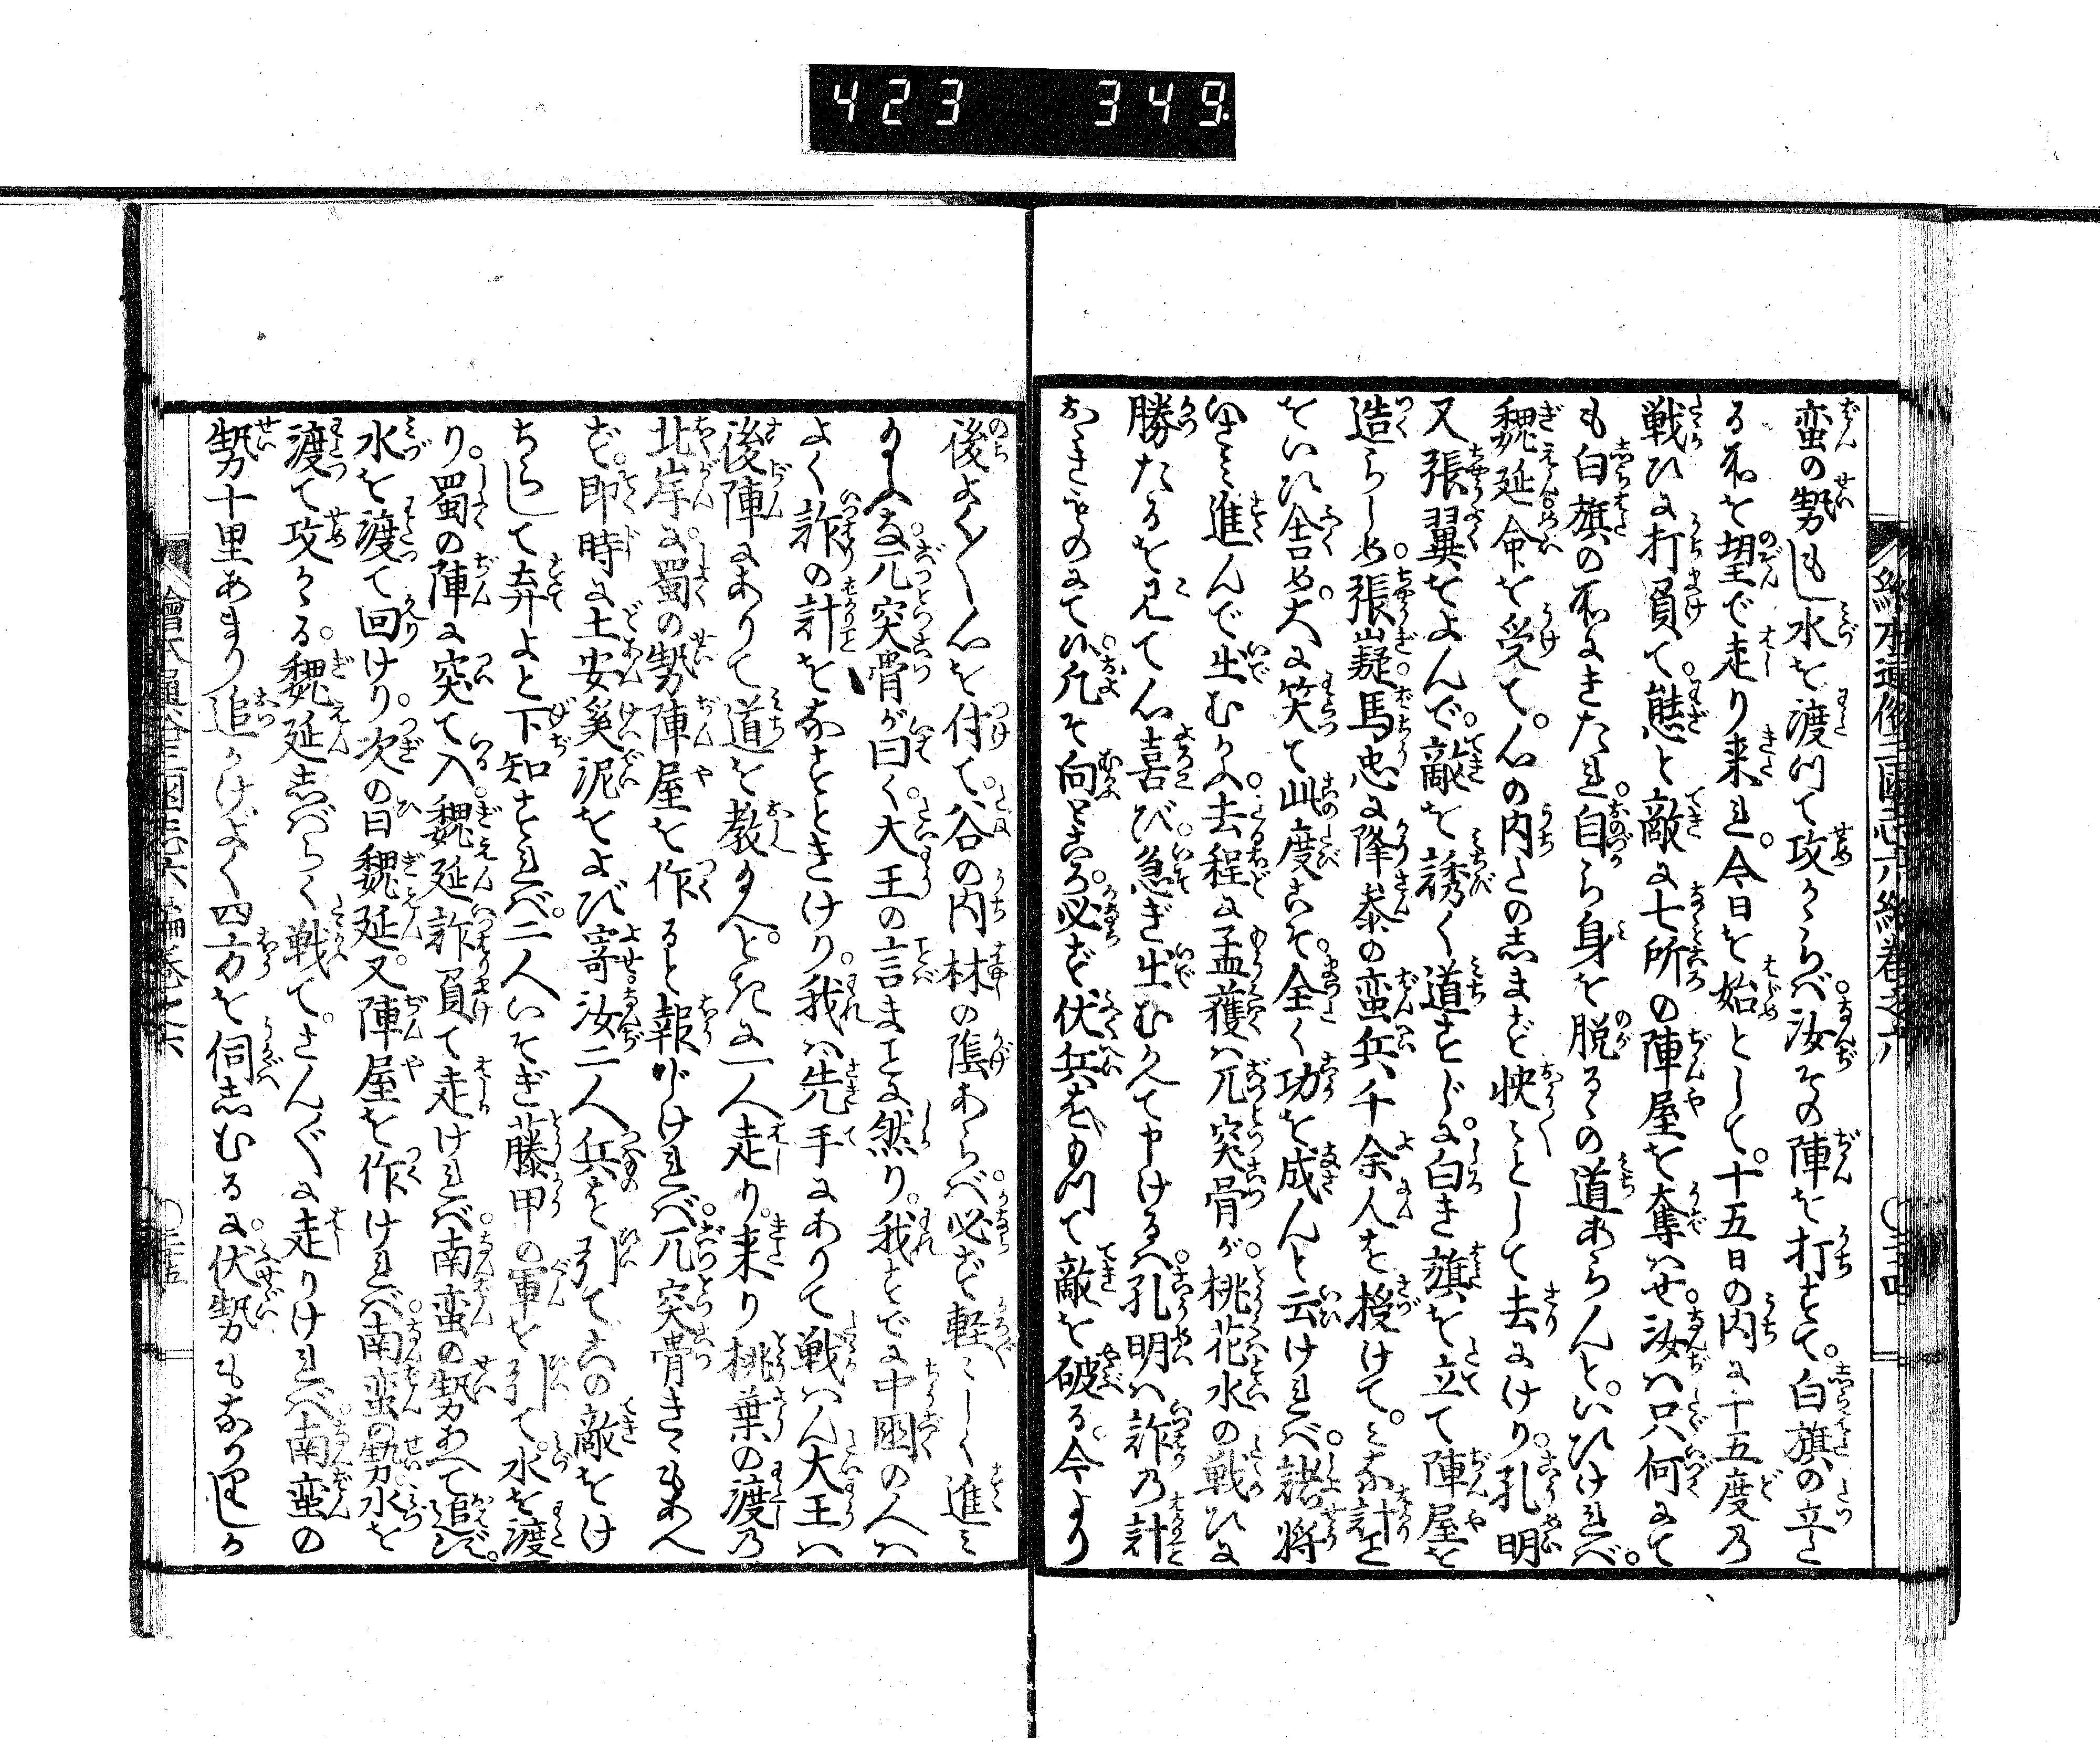 423 349.
繪本通俗三國志六編巻之六
蛮の勢もし水を渡つて攻かゝらバ汝その陣を打すて。白旗の立た
る所を望で走り来れ。今日を始として。十五日の内に十五度乃
戦ひに打負て。態と敵に七所の陣屋を奪ハせ。汝ハ只何にて
も白旗の所にきたれ。自ら身を脱るゝの道あらんと。いひけれバ。
魏延命を受て。心の内このしまず怏々として去にけり。孔明
又張翼をよんで。敵を誘く道すじに白き旗を立て陣屋を
造らしめ。張嶷馬忠に降参の蛮兵千余人を授けて。みな計
をいひ含め。大に笑て此度こそ。全く功を成んと云けれバ。諸将
いさミ進んで出むかふ。去程に孟獲ハ兀突骨が。桃花水の戦ひに
勝たるを見て心喜び。急ぎ出むかへて申けるハ。孔明ハ詐乃計
おほきものにて候。凡そ向ところ。必ず伏兵をもつて敵を破る。今より
後よく〳〵心を付て。谷の内林の陰あらバ。必ず軽々しく進ミ
玉ふな。兀突骨が曰く。大王の言まことに然り。我すでに中国の人ハ
よく詐の計をなすときけり。我ハ先手にありて戦ハん大王ハ
後陣にありて道を教玉へと。たゞに一人走り来り桃葉の渡乃
北岸に。蜀の勢陣屋を作ると報じけれバ。兀突骨きゝもあへ
ず。即時に土安奚泥をよび寄汝二人兵を引てかの敵をけ
ちらして弃よと下知すれバ。二人いそぎ藤甲の軍を引て。水を渡
り。蜀の陣に突て入。魏延詐負て走けれバ南蛮の勢あへて追ず。
水を渡て回けり。次の日魏延。又陣屋を作けれバ南蛮の勢水を
渡て攻かゝる。魏延しバらく戦て。さん〴〵に走りけれバ南蛮の
勢十里あまり追かけ。よく四方を伺しむるに。伏勢もなかりしか
繪本通俗三國志六編巻之六